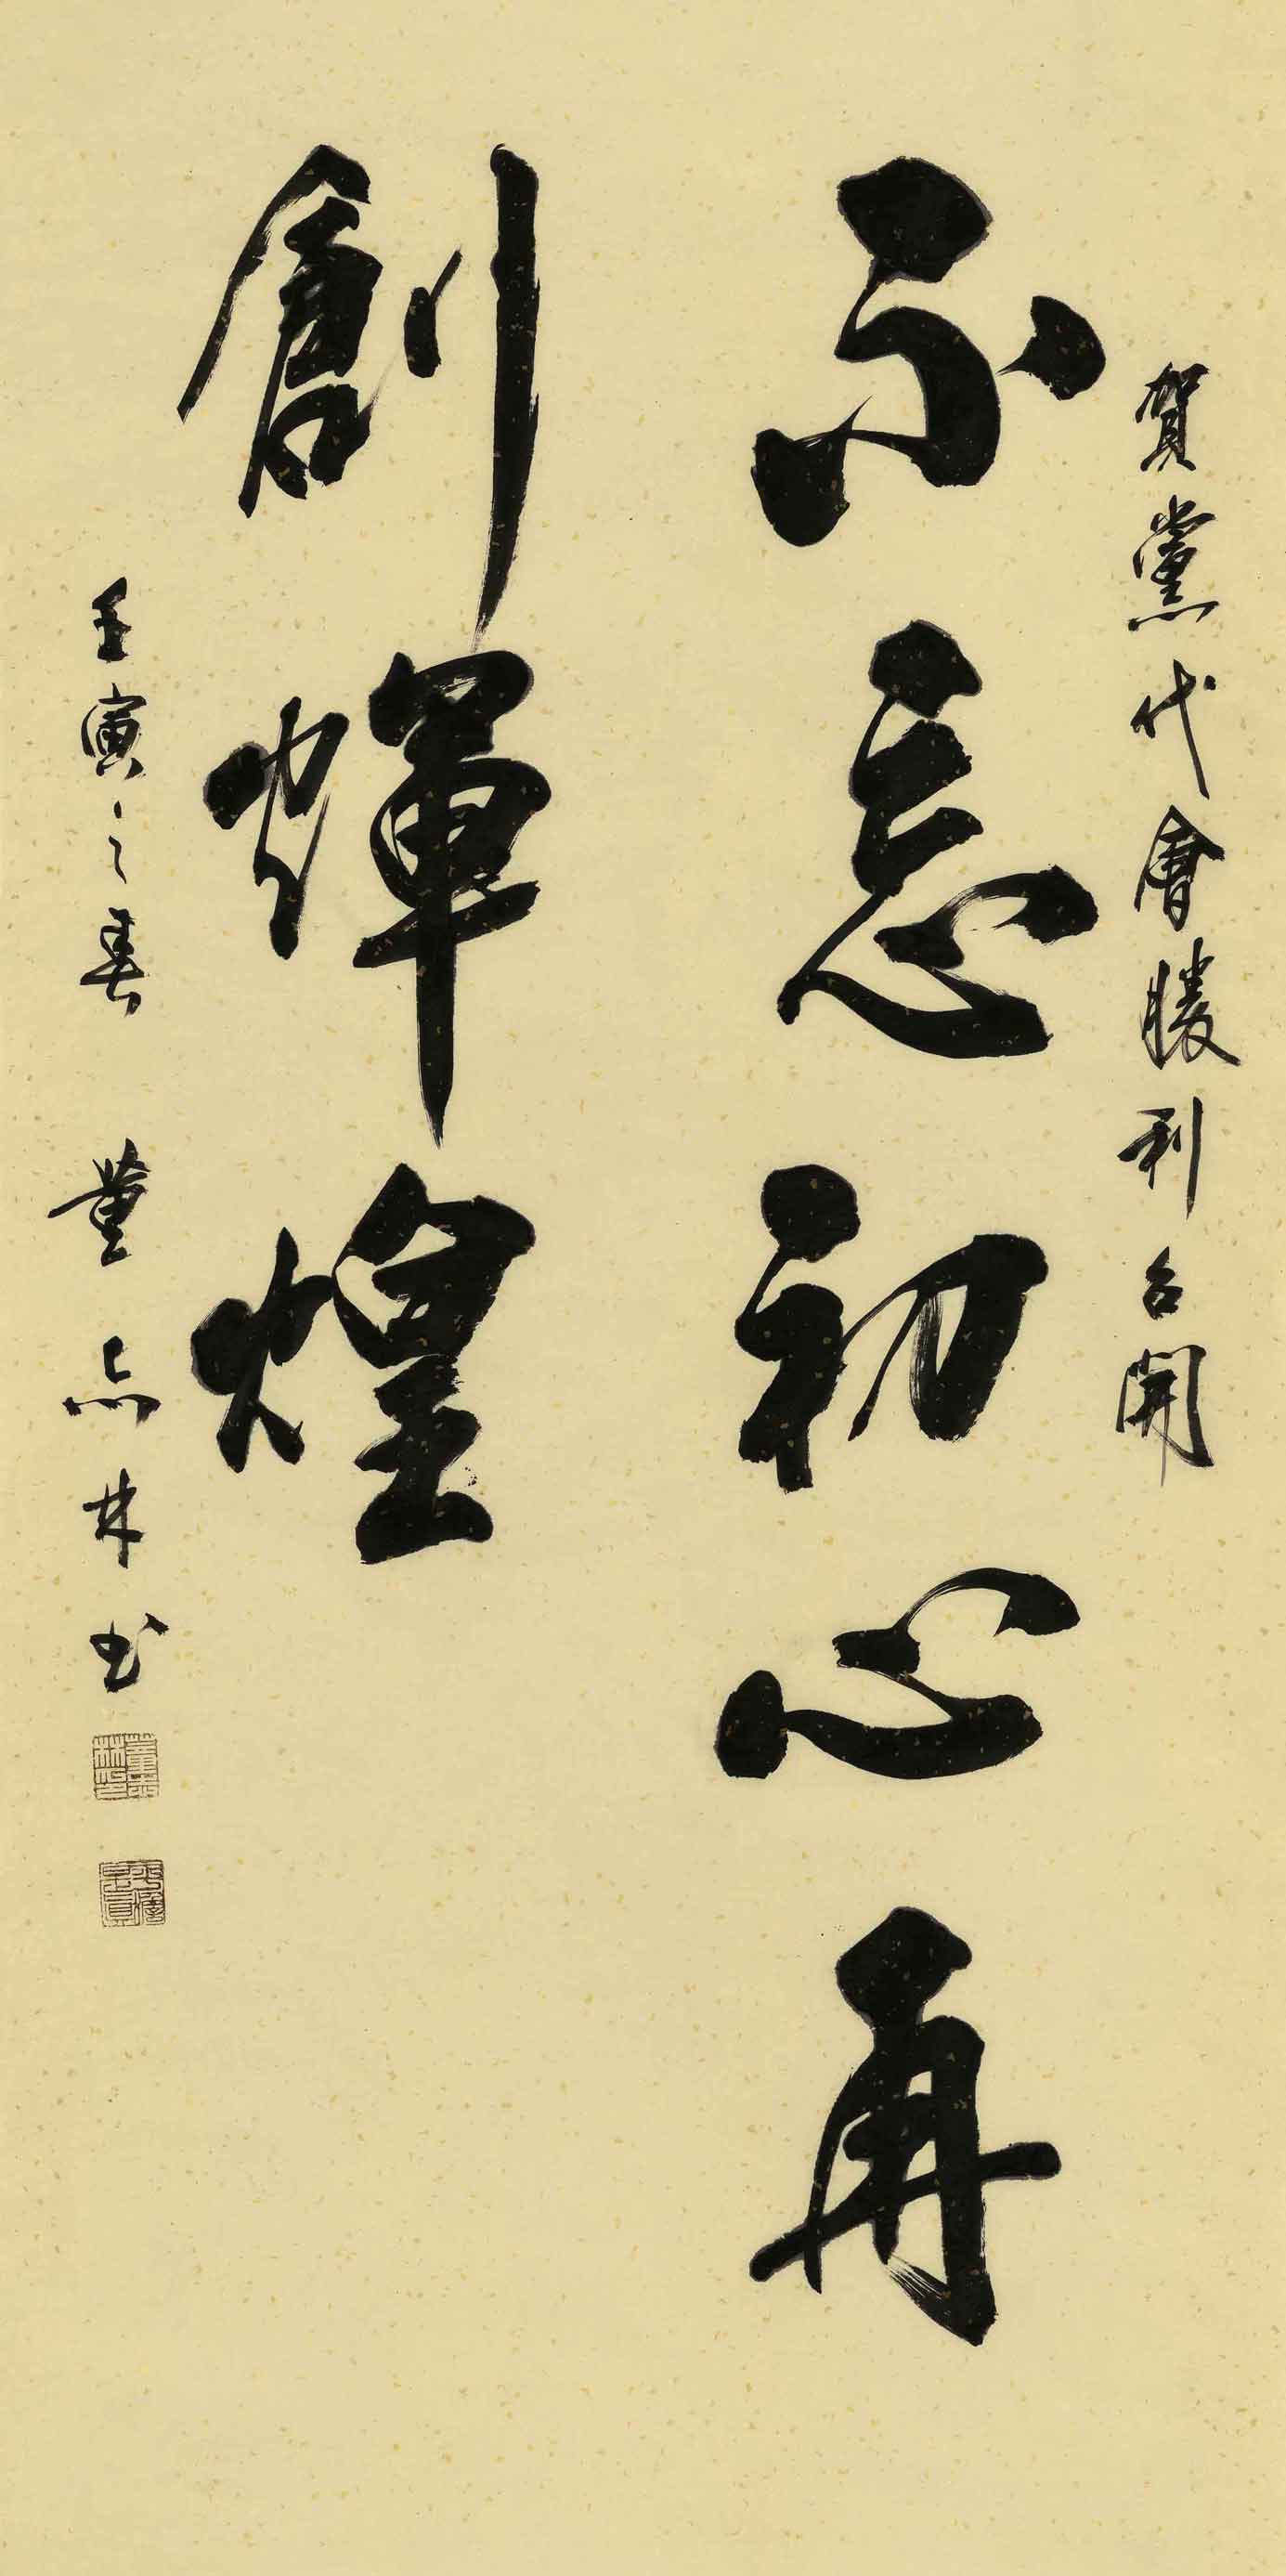 賀黨代會勝利召開
不忘初心再
創煇煌
壬寅之春 董亦林书